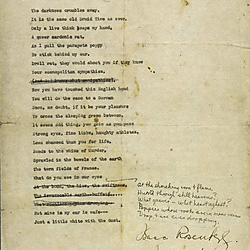 The darkness crumbles away.
It is the same old Druid Time as ever.
Only a live thing leaps my hand,
A queer sardonic rat,
As I pull the parapets poppy
To stick behind my ear.
Droll rat, they would shoot you if they knew
Your cosmopolitan sympathies.
Now you have touched this English hand
You will do the same to a German
Soon, no doubt, if it be your pleasure
To cross the sleeping green between,
It seems odd thing, you grin as you pass
Strong eyes, fine limbs, haughty athletes,
Less chanced than you for life,
Bonds to the whims of murder,
Sprawled in the bowels of the earth
The torn fields of France.
What do you see in our eyes
At the
But mine in my ear is safe--
Just a little white with the dust.
at the shrieking iron & flame
Hurled through still heavens?
What quaver - what heart aghast?
Poppies whose roots are in man's veins
Drop, & are ever dropping,
Isaac Rosenberg